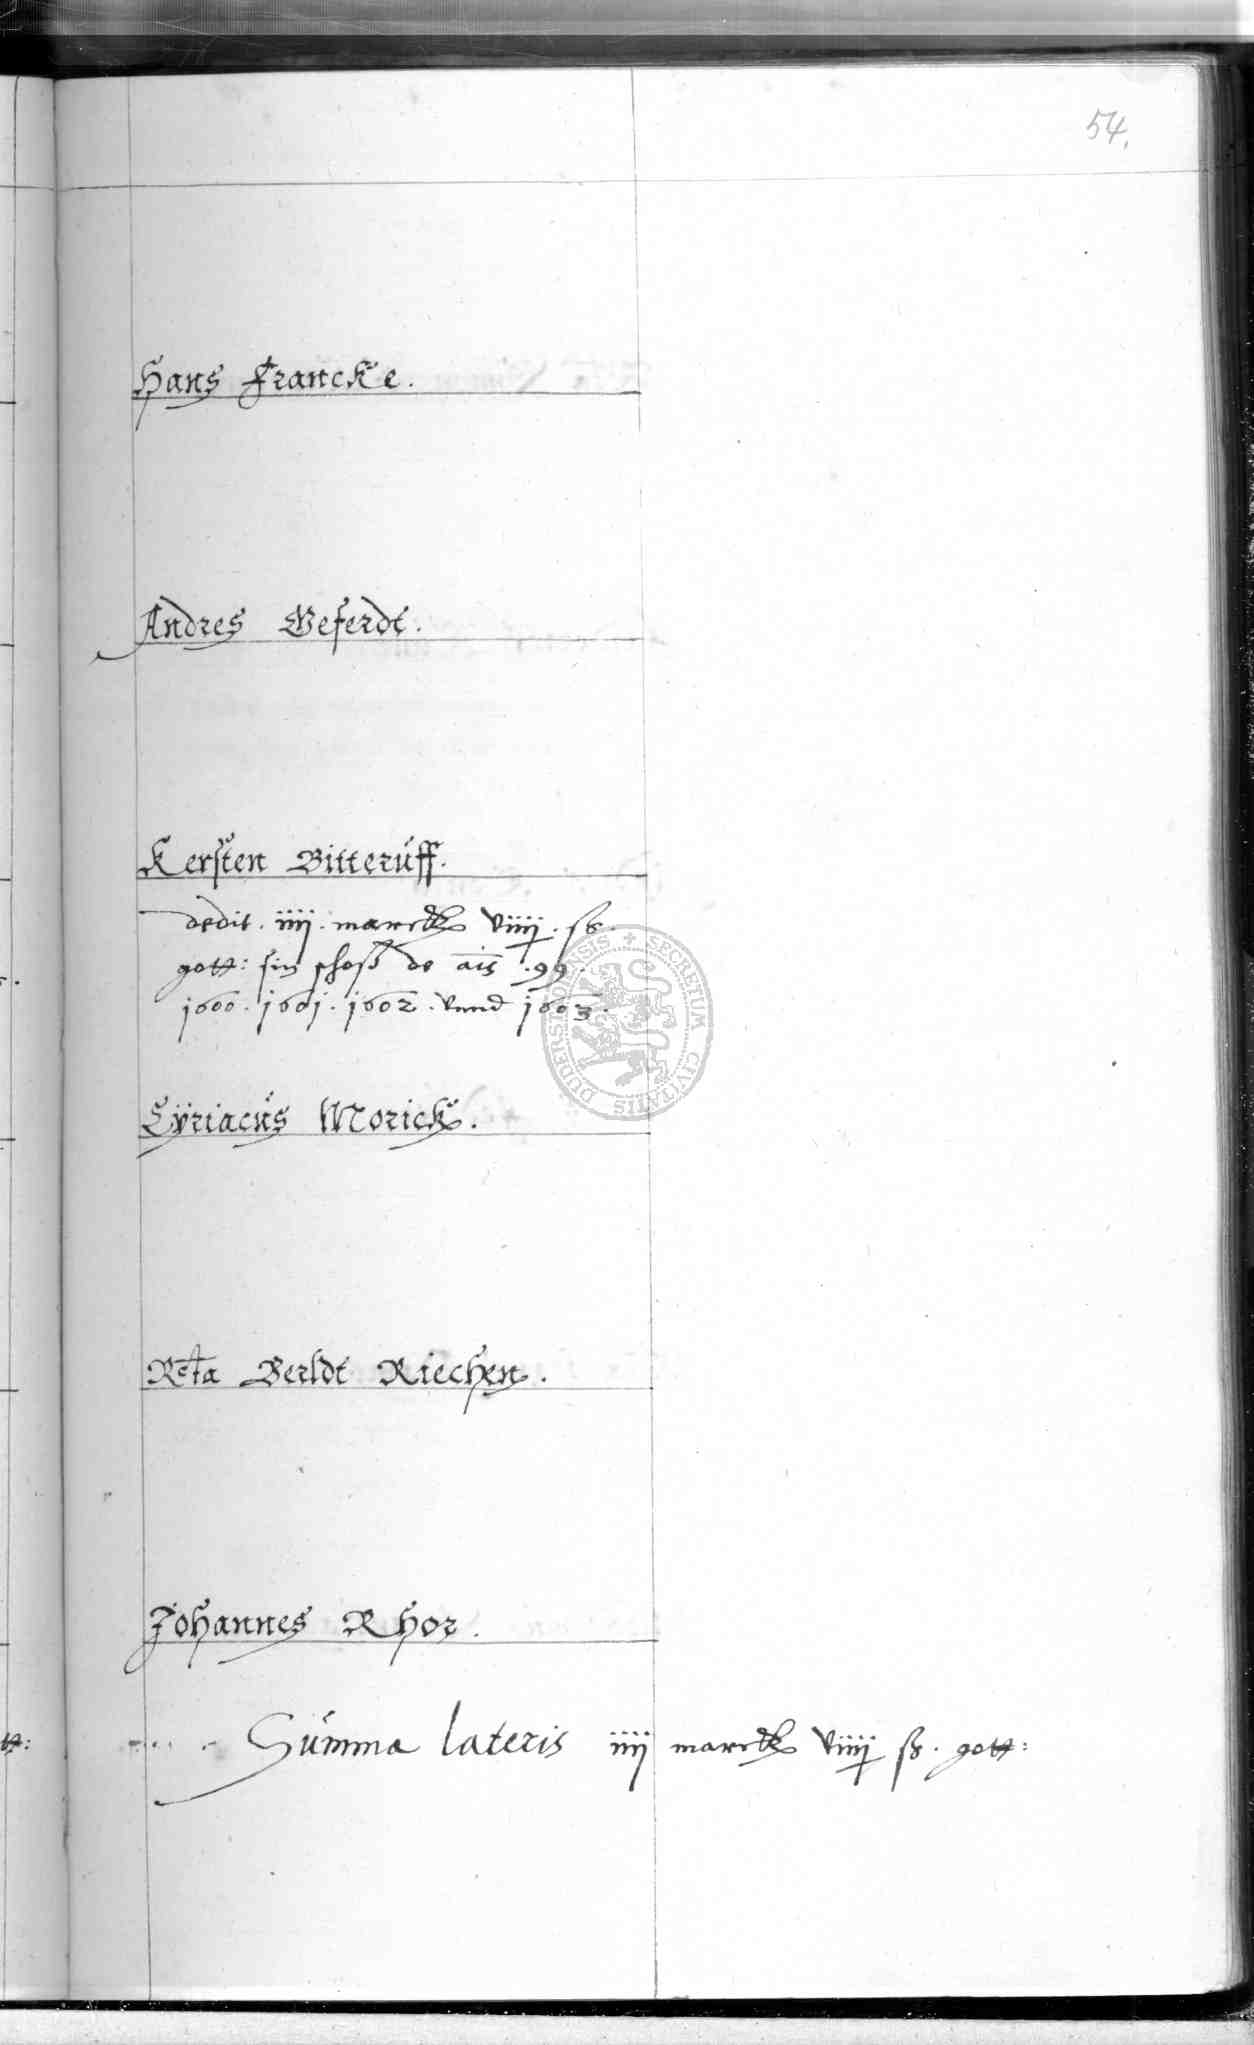 54.
Hans Francke.
Andres Geferdt.
Kersten Bitterúff.
dedit. iiij. marck viiij. ß.
gott: sin schoß de ais .99.
1600. 1601. 1602. vnnd 1603.
Cÿriacús Morick.
Rcta Berldt Riechen.
Johannes Rhor.
Súmma lateris iiij marck viiij ß. gott:
DUDERSTADENSIS + SECRETUM CIVITATIS